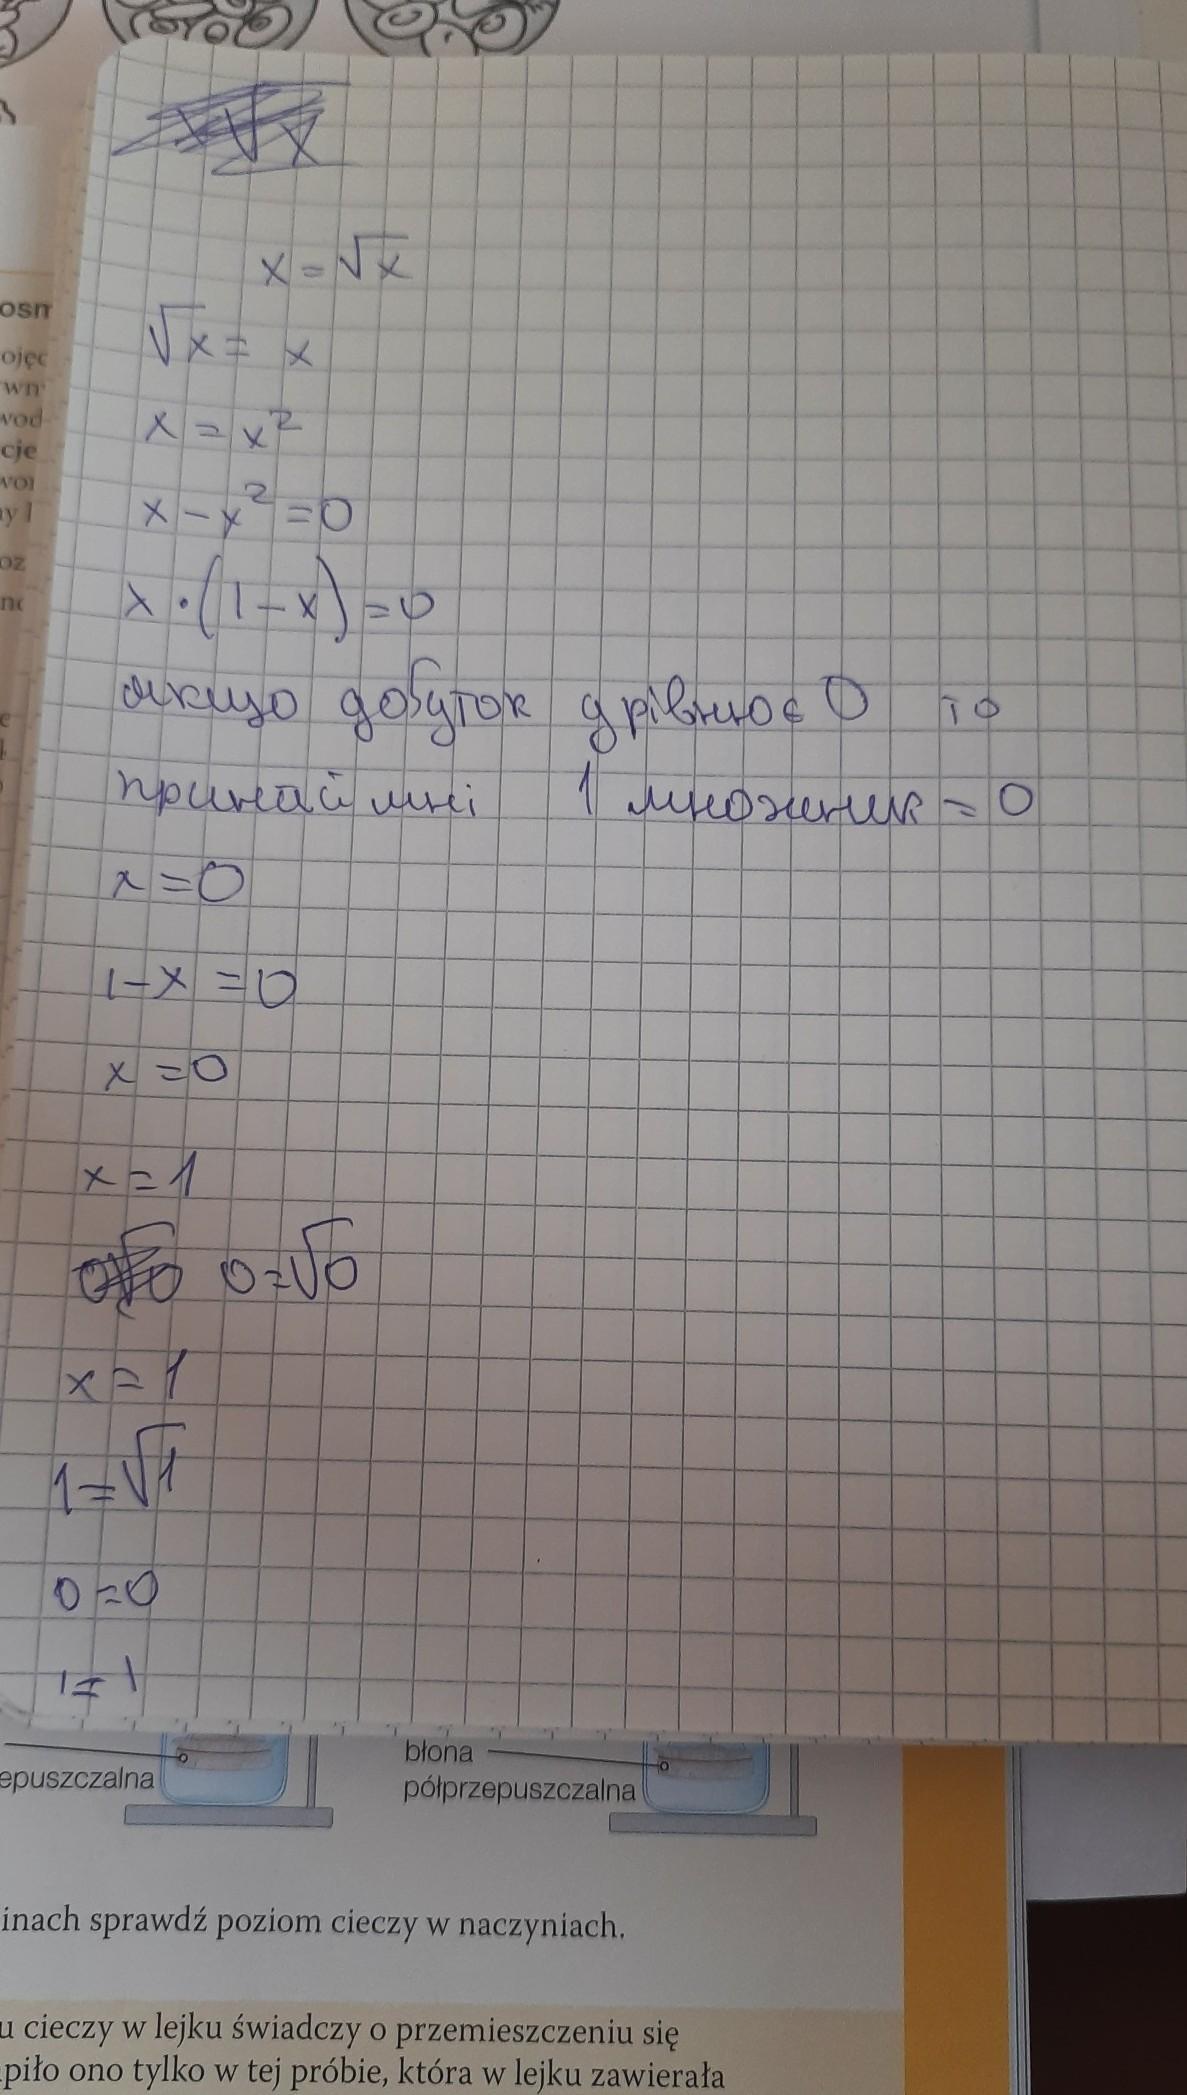 x = √x
√x = x
x = x²
x - x² = 0
x · (1 - x) = 0
якщо добуток дрівнює 0 то
принаймні 1 множник = 0
x = 0
1 - x = 0
x = 0
x = 1
0 = √0
x = 1
1 = √1
0 = 0
1 = 1
błona
epuszczalna
półprzepuszczalna
inach sprawdź poziom cieczy w naczyniach.
u cieczy w lejku świadczy o przemieszczeniu się
piło ono tylko w tej próbie, która w lejku zawierała